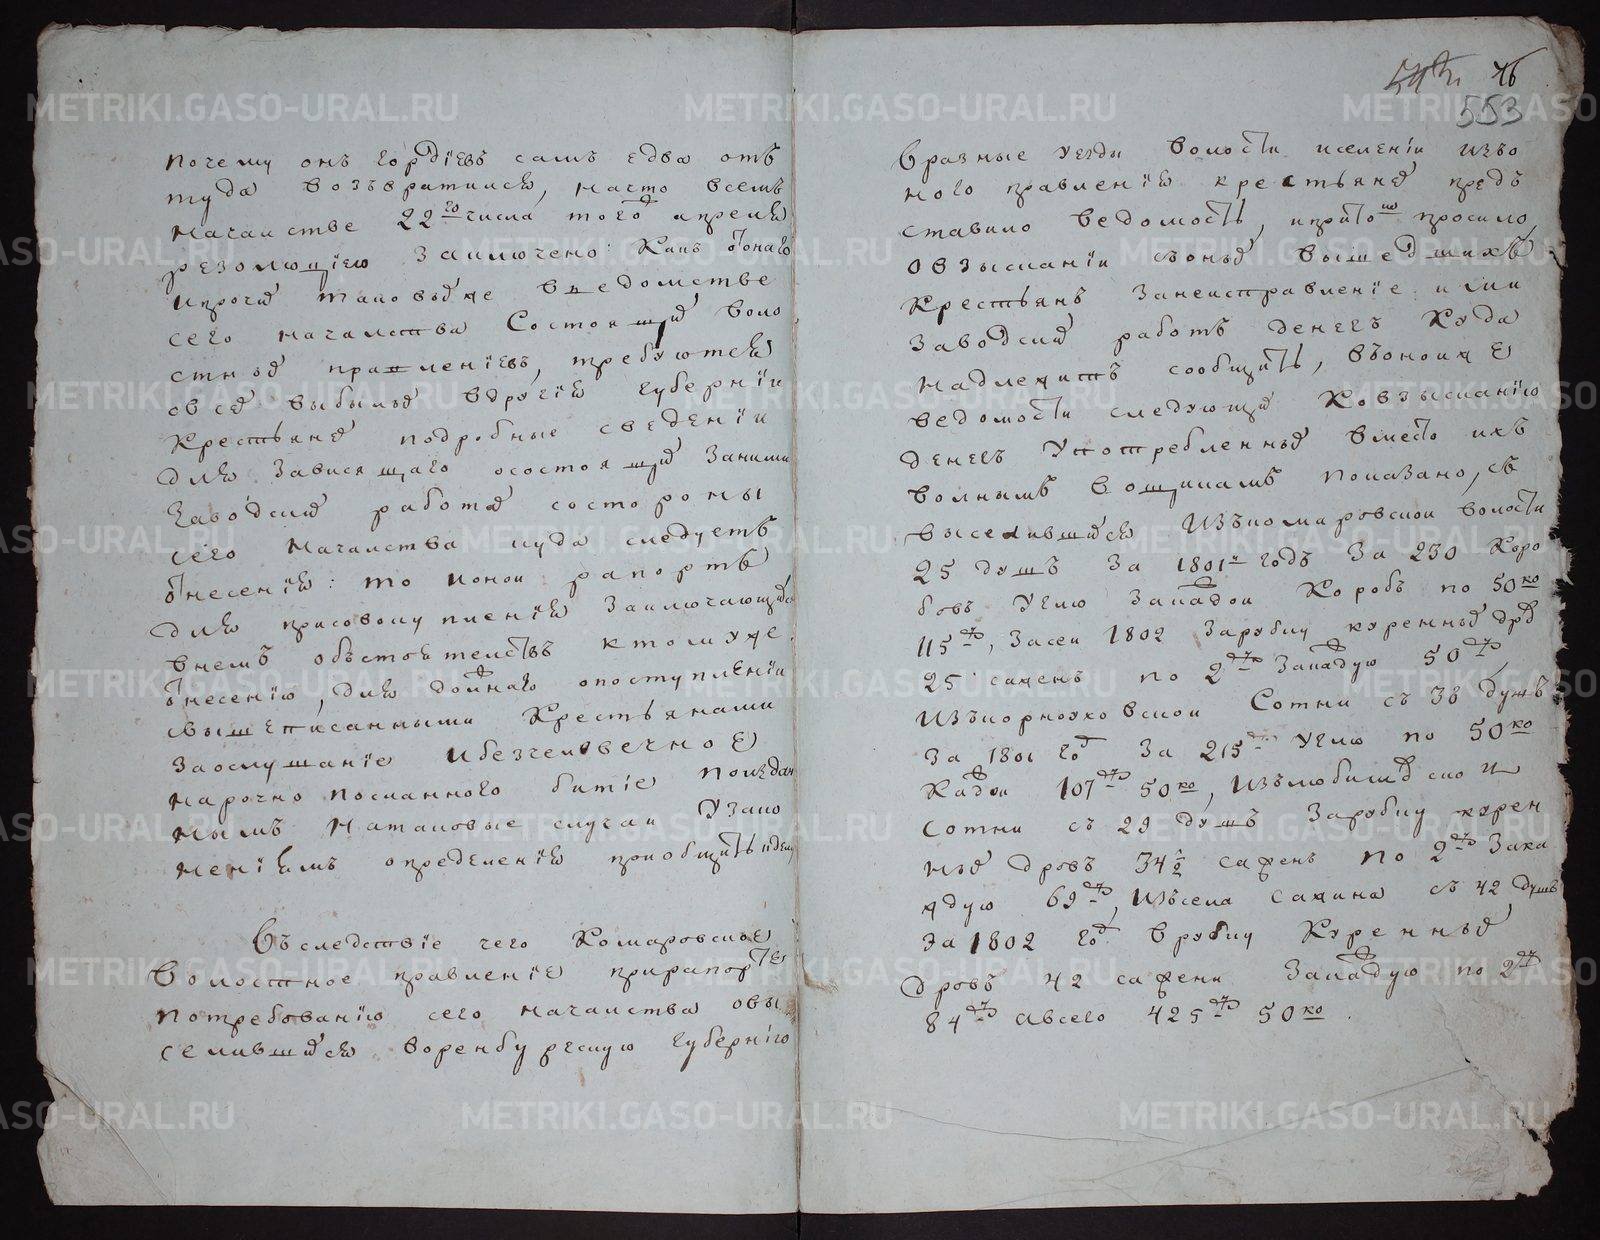 почему онъ гордіевъ самъ едва отъ
туда возвратился, начто всемъ
начальстве 22го числа того апреля
резолюціею заключено: Какъ
и прочія таковыяже введомстве
сего началства состоящія воло
стныя правленіевъ, требуются
овсе выбылые вдругія губерніи
крестьяне подробные сведеніи
для зависящаго осостоящія заними
заводския работы состороны
сего началства куда следуетъ
отнесенія: то ионои рапортъ
для присовокупленія заключающихся
внемъ обстоятелствъ ктомуже
отнесенію, для должнаго опоступленіи
свышеписанными крестьянами
заослушаніе ибезчеловечное
нарочно посланного битіе
нымъ натаковые случаи узако
неніямъ определенія пріобщить кделу
Въследствіе чего Комаровское
волостное правленіе прирапорте
потребованію сего началства овы
селившихся воренбургскую губернію
54 76
553
вразные уезды волости иселеніи изъо
ного правленія крестьяне предъ
ставило ведомость, ипритомъ просило
овзысканіи сьоныхъ вышедшихъ
крестьянъ занеисправленіе ими
заводския работъ денегъ куда
надлежитъ сообщить, въоноиже
ведомости следующія ковзысканію
денегъ употребленные вместо ихъ
волнымъ пощикамъ показано, съ
выселившихся Изъкомаровскои волости
25 душъ За 1801й годъ За 230 коро
бовъ углю закаждои коробъ по 50 ко
115 р, Засеи 1802 Зарубку куренныхъ дровъ
25 саженъ по 2 р Закаждую 50 р
Сотни съ 38 душъ
За 1801 годъ За 215 углю по 50 ко
каждои 107 р 50 ко,
сотни съ 29 душъ Зарубку курен
ныхъ дровъ 34½ сажень по 2 р Зака
ждую 69 р, Изъсела сажина съ 42 душъ
За 1802 годъ врубку куренныхъ
дровъ 42 сажени Закаждую по 2 р
84 р авсего 425 р 50 ко.
METRIKI.GASO-URAL.RU